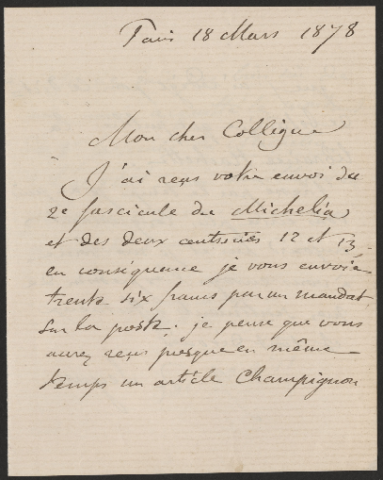 Paris 18 Mars 1878
Mon cher Collègue
J'ai reçu votre envoi du
2e fascicule du Michelia
et des deux centuries 12 et 13.
en conséquence je vous envoie
trente six francs par un mandat
sur la poste. je pense que vous
aurez reçu presque en même
temps un article Champignon